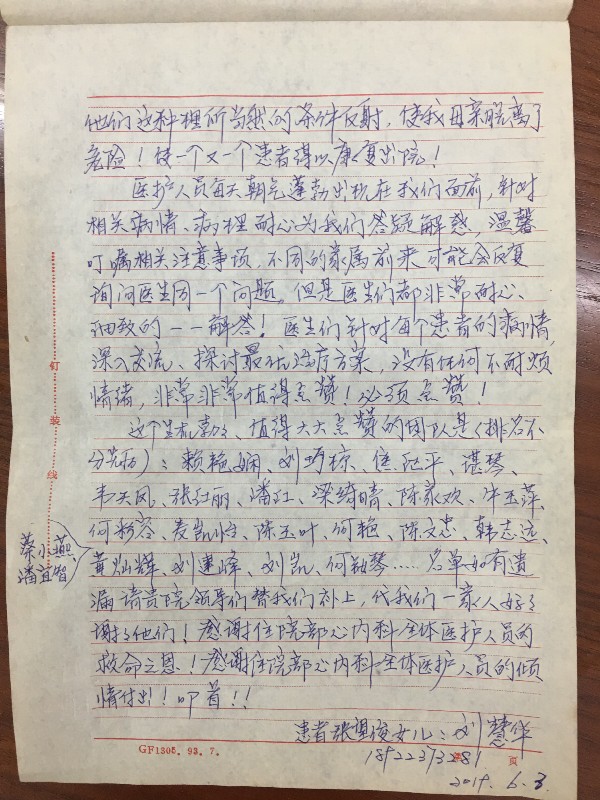 他们这种理所当然的条件反射，使我母亲脱离了
危险！使一个又一个患者得以康复出院！
医护人员每天朝气蓬勃出现在我们面前，针对
相关病情、病理耐心为我们答疑解惑，温馨
叮嘱相关注意事项，不同的家属前来可能会反复
询问医生同一个问题。但是医生们都非常耐心、
细致的一一解答！医生们针对每个患者的病情
深入交流、探讨最优治疗方案，没有任何不耐烦
情绪，非常非常值得点赞！必须点赞！
这个生机勃勃、值得大大点赞的团队是（排名不
分先后）：赖艳娴、刘巧琼、伍泛平、谌琴、
韦天凤、张红丽、潘江、梁绮晴、陈家欢、牛玉萍、
何彩容、麦凯怡、陈玉叶、何艳、陈文忠、韩志远、
蔡小燕、
潘宜智
黄灿辉、刘建峰、刘凯、何勤琴……名单如有遗
漏请贵院领导们替我们补上，代我们一家人好好
谢谢他们！感谢住院部心内科全体医护人员的
救命之恩！感谢住院部心内科全体医护人员的倾
情付出！叩首！！
患者张望俊女儿：刘慧华
GF1305. 93. 7.
页
2019. 6. 3
订
装
线